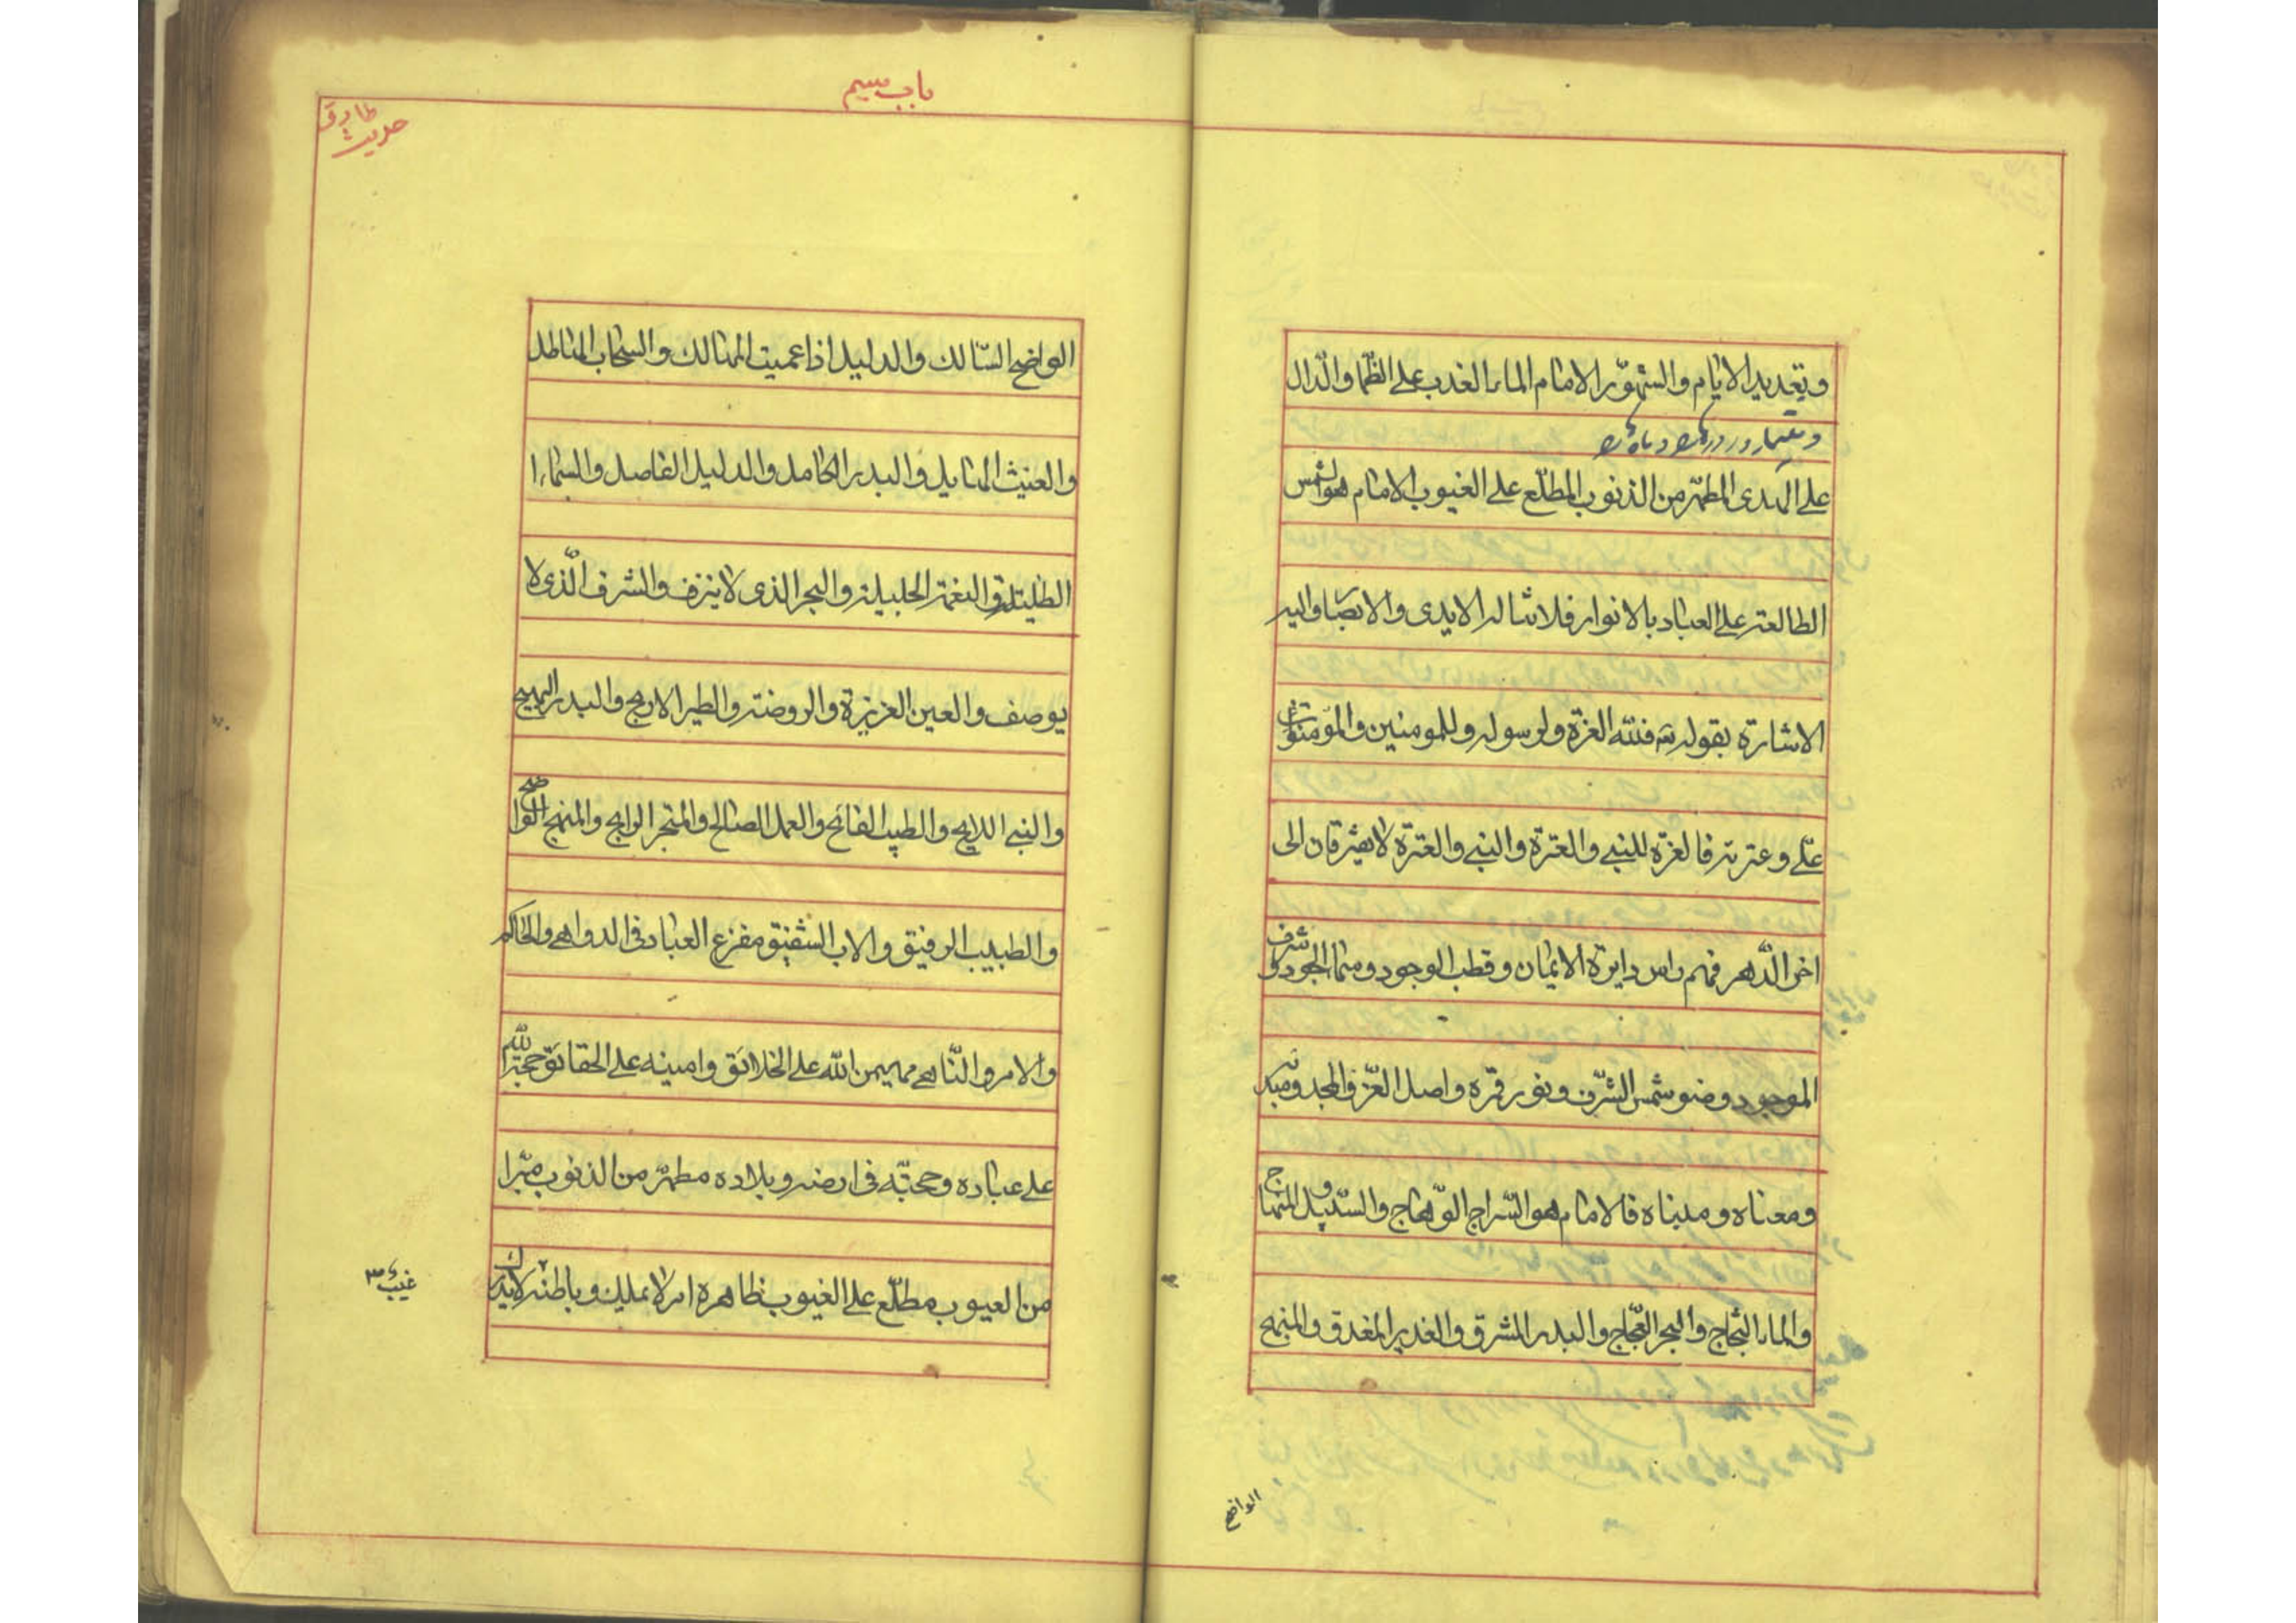 وتعديد الايام والشهور الامام الماء العذب على الظما والدال
على الهدى المطهر من الذنوب المطلع على الغيوب الامام هو الشمس
الطالعة على العباد بالانوار فلا تناله الايدى والابصار واليه
الاشارة بقوله تع فلله العزة ولرسوله وللمومنين والمومنون
على وعترته فالعزة للنبى والعترة والنبى والعترة لا يفترقان الى
اخر الدهر فهم راس دايرة الايمان وقطب الوجود وسماء الجود وشرف
الموجود وضوء شمس الشرف ونور قمره واصل العز والمجد ومبدئه
ومعناه ومبناه فالامام هو السراج الوهاج والسبيل والمنهاج
والماء الثجاج والبحر العجاج والبدر المشرق والغدير المغدق والمنهج
الواضح
باب سيم
حديث طارق
الواضح المسالك والدليل اذا عميت المهالك والسحاب الهاطل
والغيث الهامل والبدر الكامل والدليل الفاصل والسماء ا
الظليلة والنعمة الجليلة والبحر الذى لا ينزف والشرف الذى لا
يوصف والعين الغزيرة والروضة والطير الاريج والبدر البهيج
والنبى اللايح والطيب الفائح والعمل الصالح والمتجر الرابح والمنهج الواضح
والطبيب الرفيق والاب الشفيق مفزع العباد فى الدواهى والحاكم
والامر والناهى مهيمن الله على الخلائق وامينه على الحقائق حجة الله
على عباده ومحجته فى ارضه وبلاده مطهر من الذنوب مبرا
من العيوب مطلع على الغيوب ظاهره امر لا يملك وباطنه لا يدرك